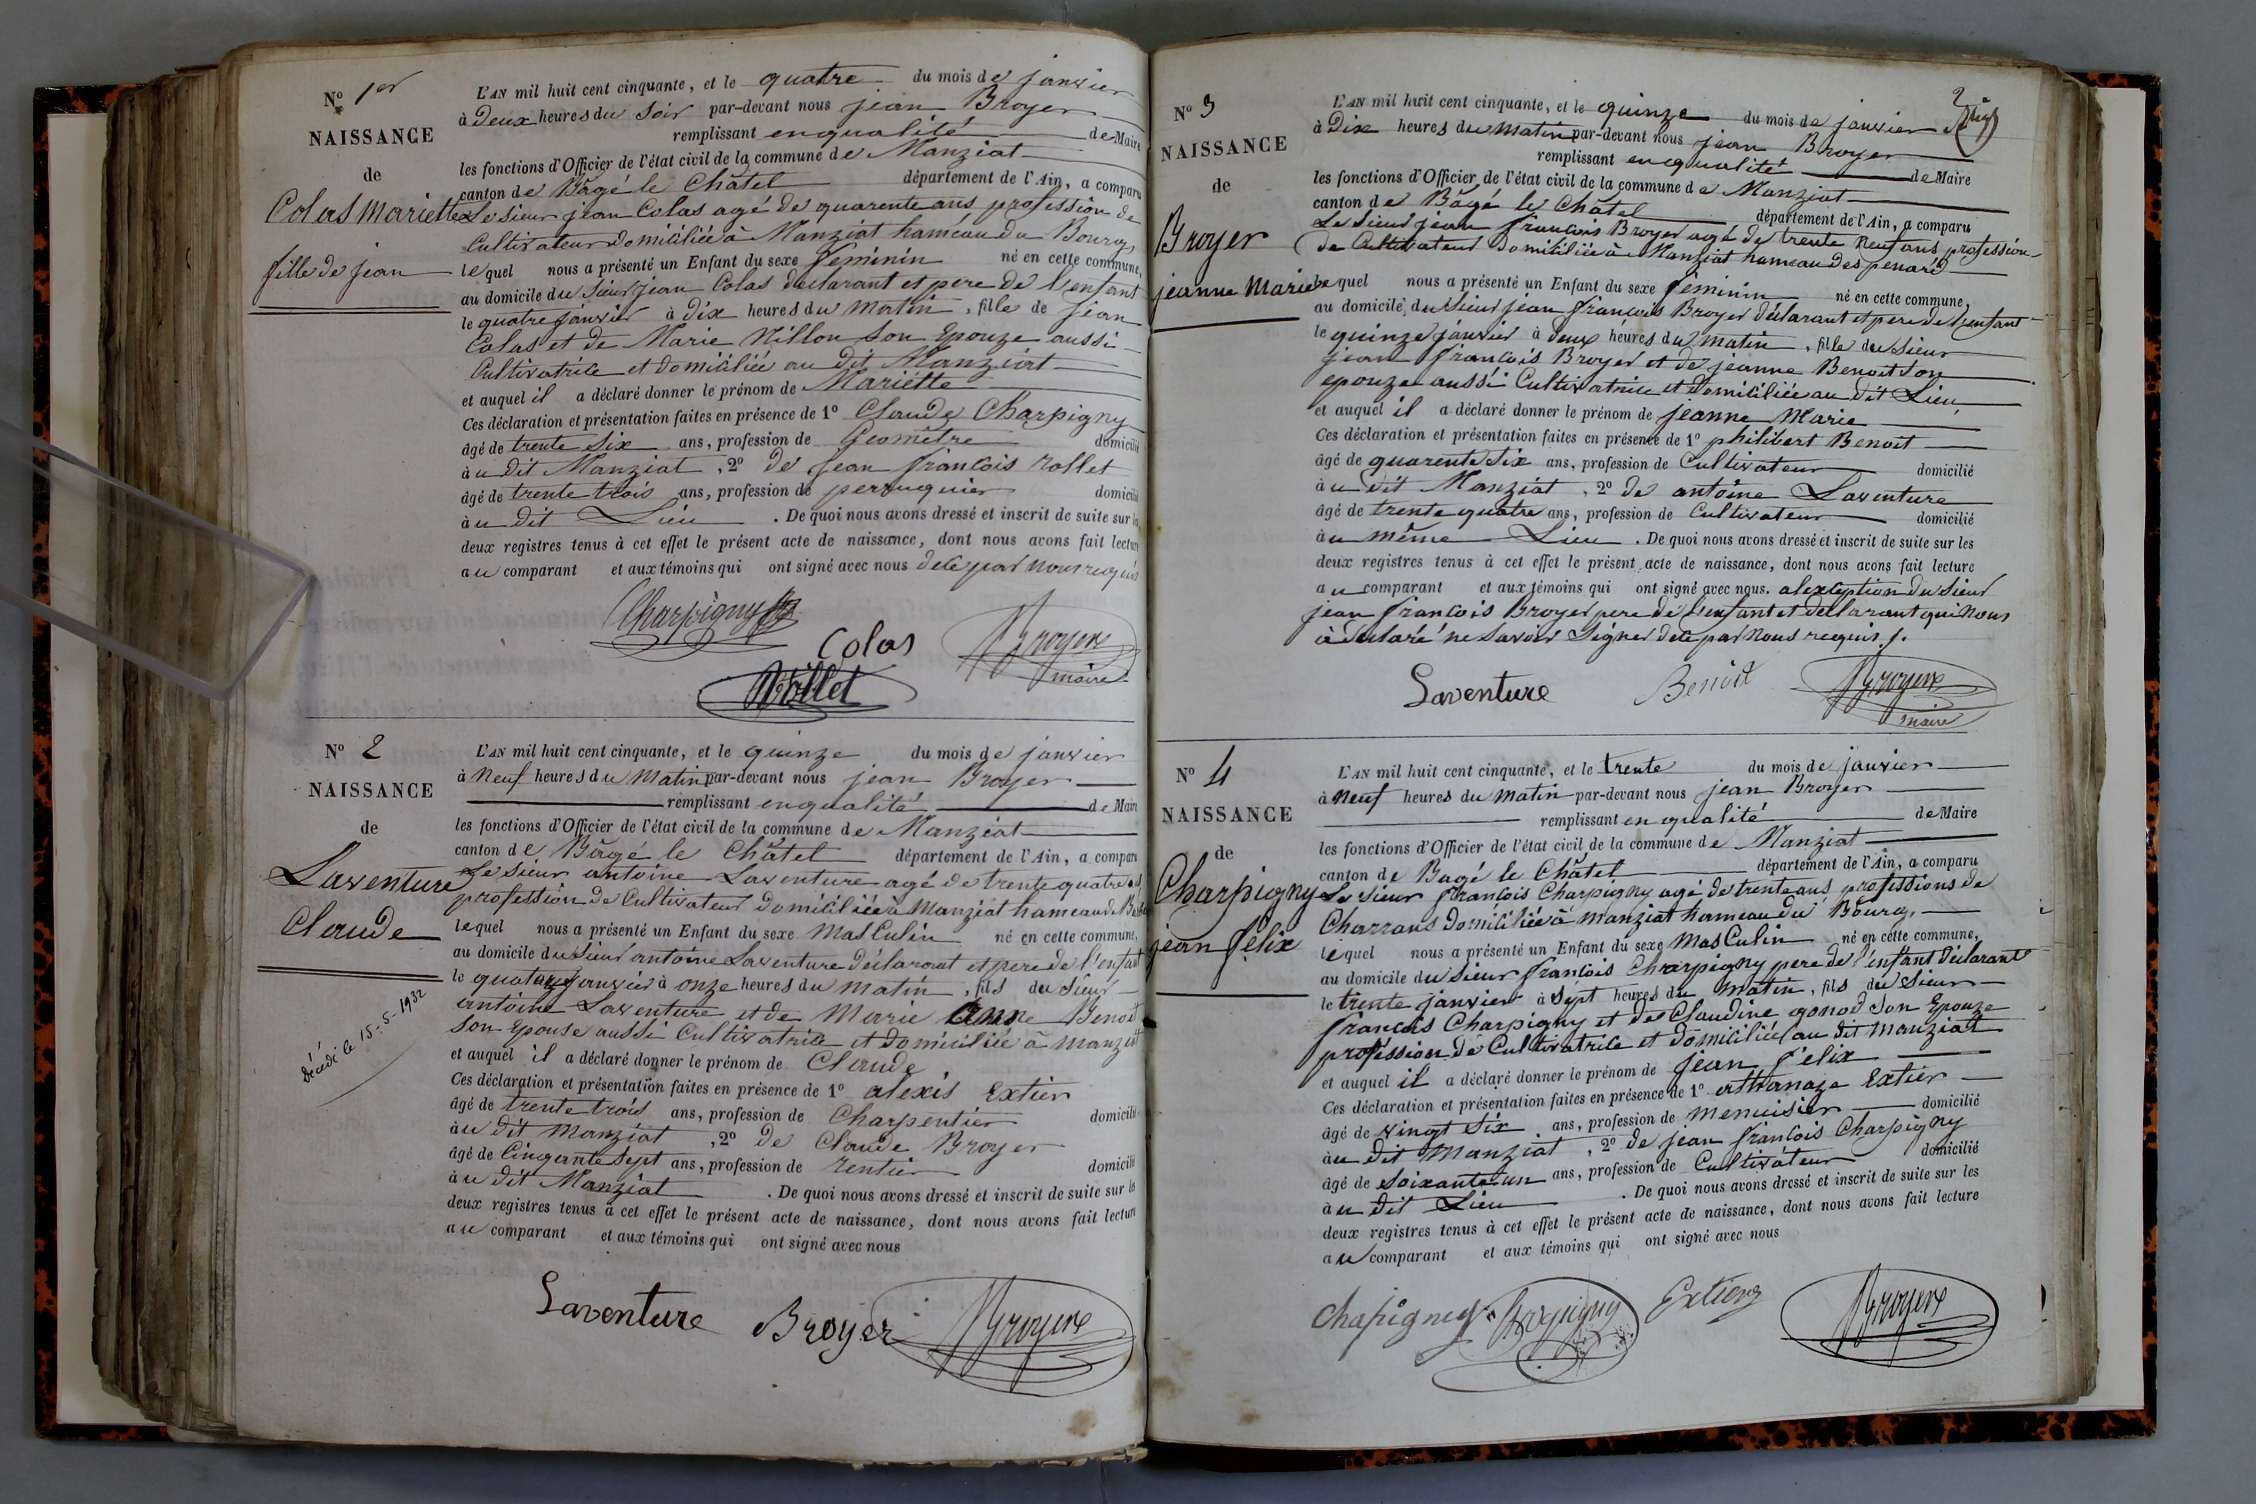 N° 1er
NAISSANCE
de
Colas Mariette
fille de jean
L'AN mil huit cent cinquante, et le quatre du mois de janvier
à Deux heures du Soir par-devant nous jean Broyer
remplissant en qualité de Maire
les fonctions d'Officier de l'état civil de la commune de Manziat
canton de Bâgé le Châtel département de l'Ain, a comparu
Le sieur jean Colas agé de quarente ans profession de
Cultivateur domiciliée à Manziat haméau du Bourg
lequel nous a présenté un Enfant du sexe feminin né en cette commune,
au domicile du Sieur jean Colas déclarant et pere de l'enfant
le quatre janvier à Dix heures du Matin, fille de jean
Colas et de Marie Nillon Son Epouze aussi
Cultivatrice et domiciliée au dit Manziat
et auquel il a déclaré donner le prénom de Mariette
Ces déclaration et présentation faites en présence de 1° Claude Charpigny
âgé de trente Six ans, profession de Géomètre domicilié
à u dit Manziat, 2° de jean françois rollet
âgé de trente trois ans, profession de perruquier domicilié
à u dit Lieu. De quoi nous avons dressé et inscrit de suite sur les
deux registres tenus à cet effet le présent acte de naissance, dont nous avons fait lecture
a u comparant et aux témoins qui ont signé avec nous de ce par nous requis
Charpigny
Colas
Broyer
maire
Rollet
N° 2
NAISSANCE
de
Laventure
Claude
décédé le 15-5-1932
L'AN mil huit cent cinquante, et le quinze du mois de janvier
à Neuf heures du Matin par-devant nous jean Broyer
remplissant en qualité de Maire
les fonctions d'Officier de l'état civil de la commune de Manziat
canton de Bâgé le Châtel département de l'Ain, a comparu
Le Sieur antoine Laventure agé de trente quatre ans
profession de Cultivateur domiciliée à Manziat hameau de
lequel nous a présenté un Enfant du sexe MasCulin né en cette commune,
au domicile du Sieur antoine Laventure déclarant et pere de l'enfant
le quatorze janvier à onze heures du matin, fils du Sieur
antoine Laventure et de Marie anne Benoit
Son Epouse aussi Cultivatrice et domiciliée à Manziat
et auquel il a déclaré donner le prénom de Claude
Ces déclaration et présentation faites en présence de 1° alexis Extier
âgé de trente trois ans, profession de Charpentier domicilié
à u dit Manziat, 2° de Claude Broyer
âgé de Cinquante Sept ans, profession de rentier domicilié
à u dit Manziat. De quoi nous avons dressé et inscrit de suite sur les
deux registres tenus à cet effet le présent acte de naissance, dont nous avons fait lecture
a u comparant et aux témoins qui ont signé avec nous
Laventure
Broyer
Broyer
2
N° 3
NAISSANCE
de
Broyer
jeanne Marie
L'AN mil huit cent cinquante, et le quinze du mois de janvier
à Dix heures du Matin par-devant nous jean Broyer
remplissant en qualité de Maire
les fonctions d'Officier de l'état civil de la commune de Manziat
canton de Bâgé le Châtel département de l'Ain, a comparu
Le Sieur jean françois Broyer agé de trente neuf ans profession
de Cultivateur domiciliée à Manziat hameau des penard
lequel nous a présenté un Enfant du sexe feminin né en cette commune,
au domicile du Sieur jean françois Broyer déclarant et pere de l'enfant
le quinze janvier à deux heures du matin, fille du Sieur
jean françois Broyer et de jeanne Benoit Son
epouze aussi Cultivatrice et domiciliée au dit Lieu
et auquel il a déclaré donner le prénom de jeanne Marie
Ces déclaration et présentation faites en présence de 1° philibert Benoit
âgé de quarente Six ans, profession de Cultivateur domicilié
à u dit Manziat, 2° de antoine Laventure
âgé de trente quatre ans, profession de Cultivateur domicilié
à u même Lieu. De quoi nous avons dressé et inscrit de suite sur les
deux registres tenus à cet effet le présent acte de naissance, dont nous avons fait lecture
a u comparant et aux témoins qui ont signé avec nous. alexception du Sieur
jean françois Broyer pere de l'enfant et déclarant qui nous
à déclaré ne Savoir Signer de ce par nous requis
Laventure
Benoit
Broyer
maire
N° 4
NAISSANCE
de
Charpigny
jean félix
L'AN mil huit cent cinquante, et le trente du mois de janvier
à Neuf heures du Matin par-devant nous jean Broyer
remplissant en qualité de Maire
les fonctions d'Officier de l'état civil de la commune de Manziat
canton de Bagé le Châtel département de l'Ain, a comparu
Le Sieur françois Charpigny agé de trente ans professions de
Charrons domiciliée à Manziat hameau du Bourg,
lequel nous a présenté un Enfant du sexe MasCulin né en cette commune,
au domicile du Sieur françois Charpigny pere de l'enfant déclarant
le trente janvier à Sept heures du matin, fils du Sieur
françois Charpigny et de Claudine gonod Son Epouze
proféssion de Cultivatrice et domiciliée au dit Manziat
et auquel il a déclaré donner le prénom de jean félix
Ces déclaration et présentation faites en présence de 1° athanaze Extier
âgé de vingt Six ans, profession de menuisier domicilié
à u dit Manziat, 2° de jean françois Charpigny
âgé de Soixante un ans, profession de Cultivateur domicilié
à u dit Lieu. De quoi nous avons dressé et inscrit de suite sur les
deux registres tenus à cet effet le présent acte de naissance, dont nous avons fait lecture
a u comparant et aux témoins qui ont signé avec nous
Chapigny
Charpigny
Extier
Broyer